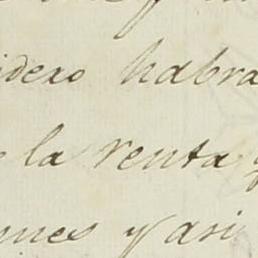 idero habra
la renta y
nes y asi